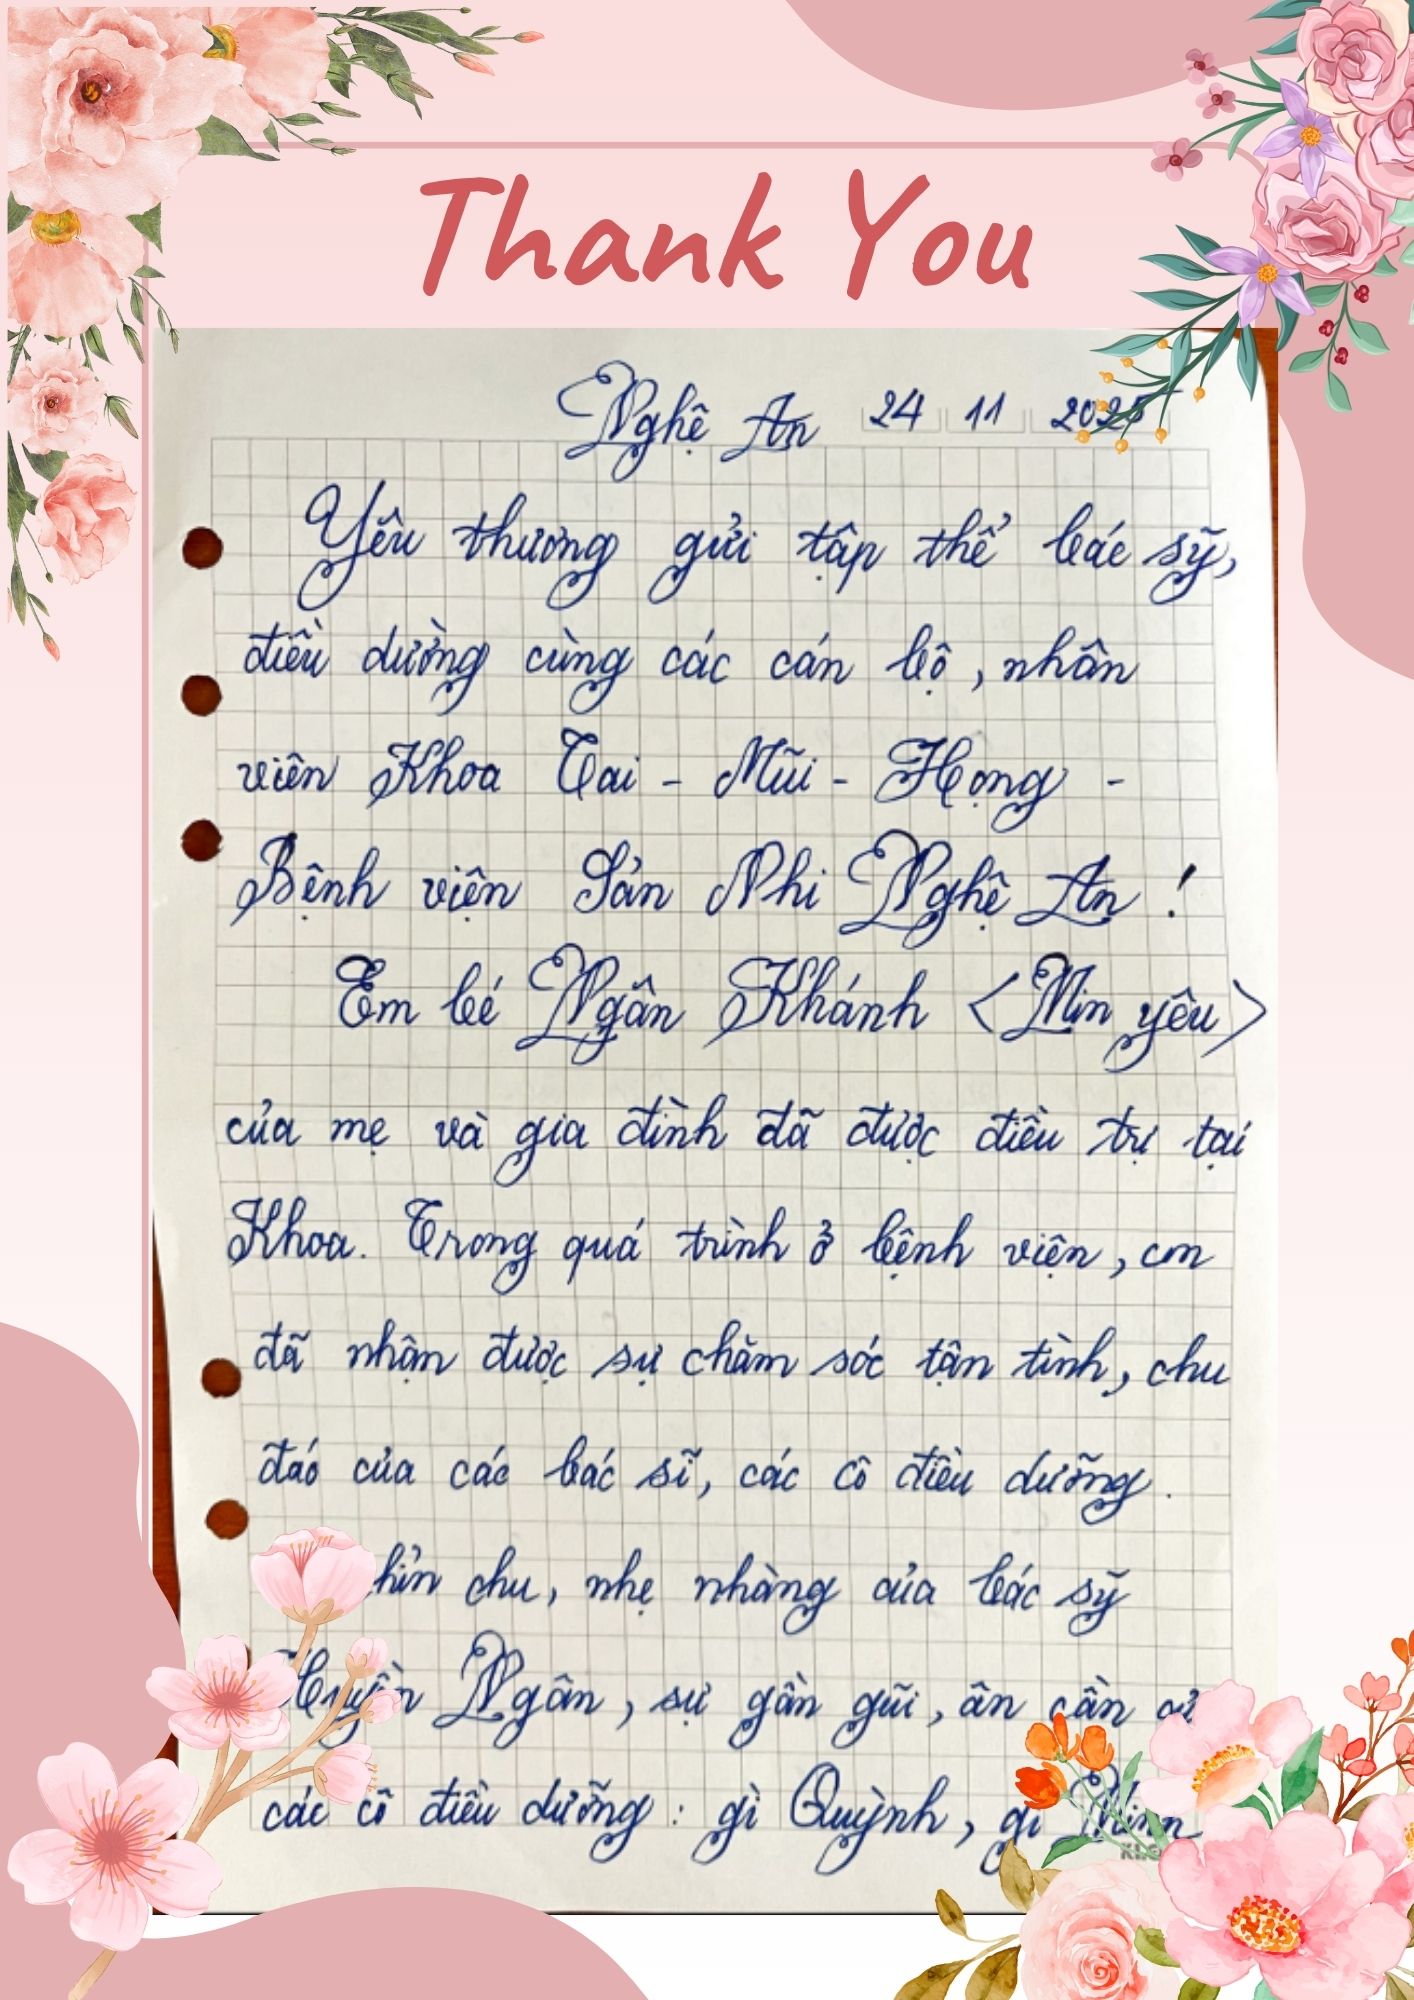 Thank You
Nghệ An 24 11 2025
Yêu thương gửi tập thể bác sỹ,
điều dưỡng cùng các cán bộ, nhân
viên Khoa Tai - Mũi - Họng -
Bệnh viện Sản Nhi Nghệ An !
Em bé Ngân Khánh <Min yêu>
của mẹ và gia đình đã được điều trị tại
Khoa. Trong quá trình ở bệnh viện, em
đã nhận được sự chăm sóc tận tình, chu
đáo của các bác sĩ, các cô điều dưỡng.
chu, nhẹ nhàng của bác sỹ
Huyền Ngân, sự gần gũi, ân cần
các cô điều dưỡng : gì Quỳnh, gì